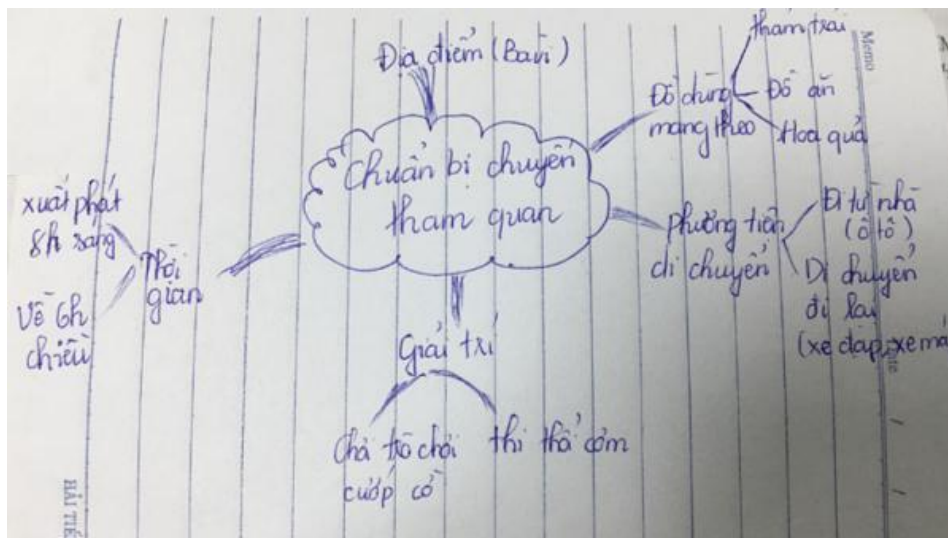 Địa điểm (Ba vì)
Chuẩn bị chuyến
tham quan
Đồ dùng
mang theo
thảm trải
Đồ ăn
Hoa quả
phương tiện
di chuyển
Đi từ nhà
(ô tô)
Di chuyển
đi lại
(xe đạp, xe má
Giải trí
Chơi trò chơi
cướp cờ
thi thổi cơm
Thời
gian
xuất phát
8h sáng
Về 6h
chiều
Memo
HẢI TIẾ